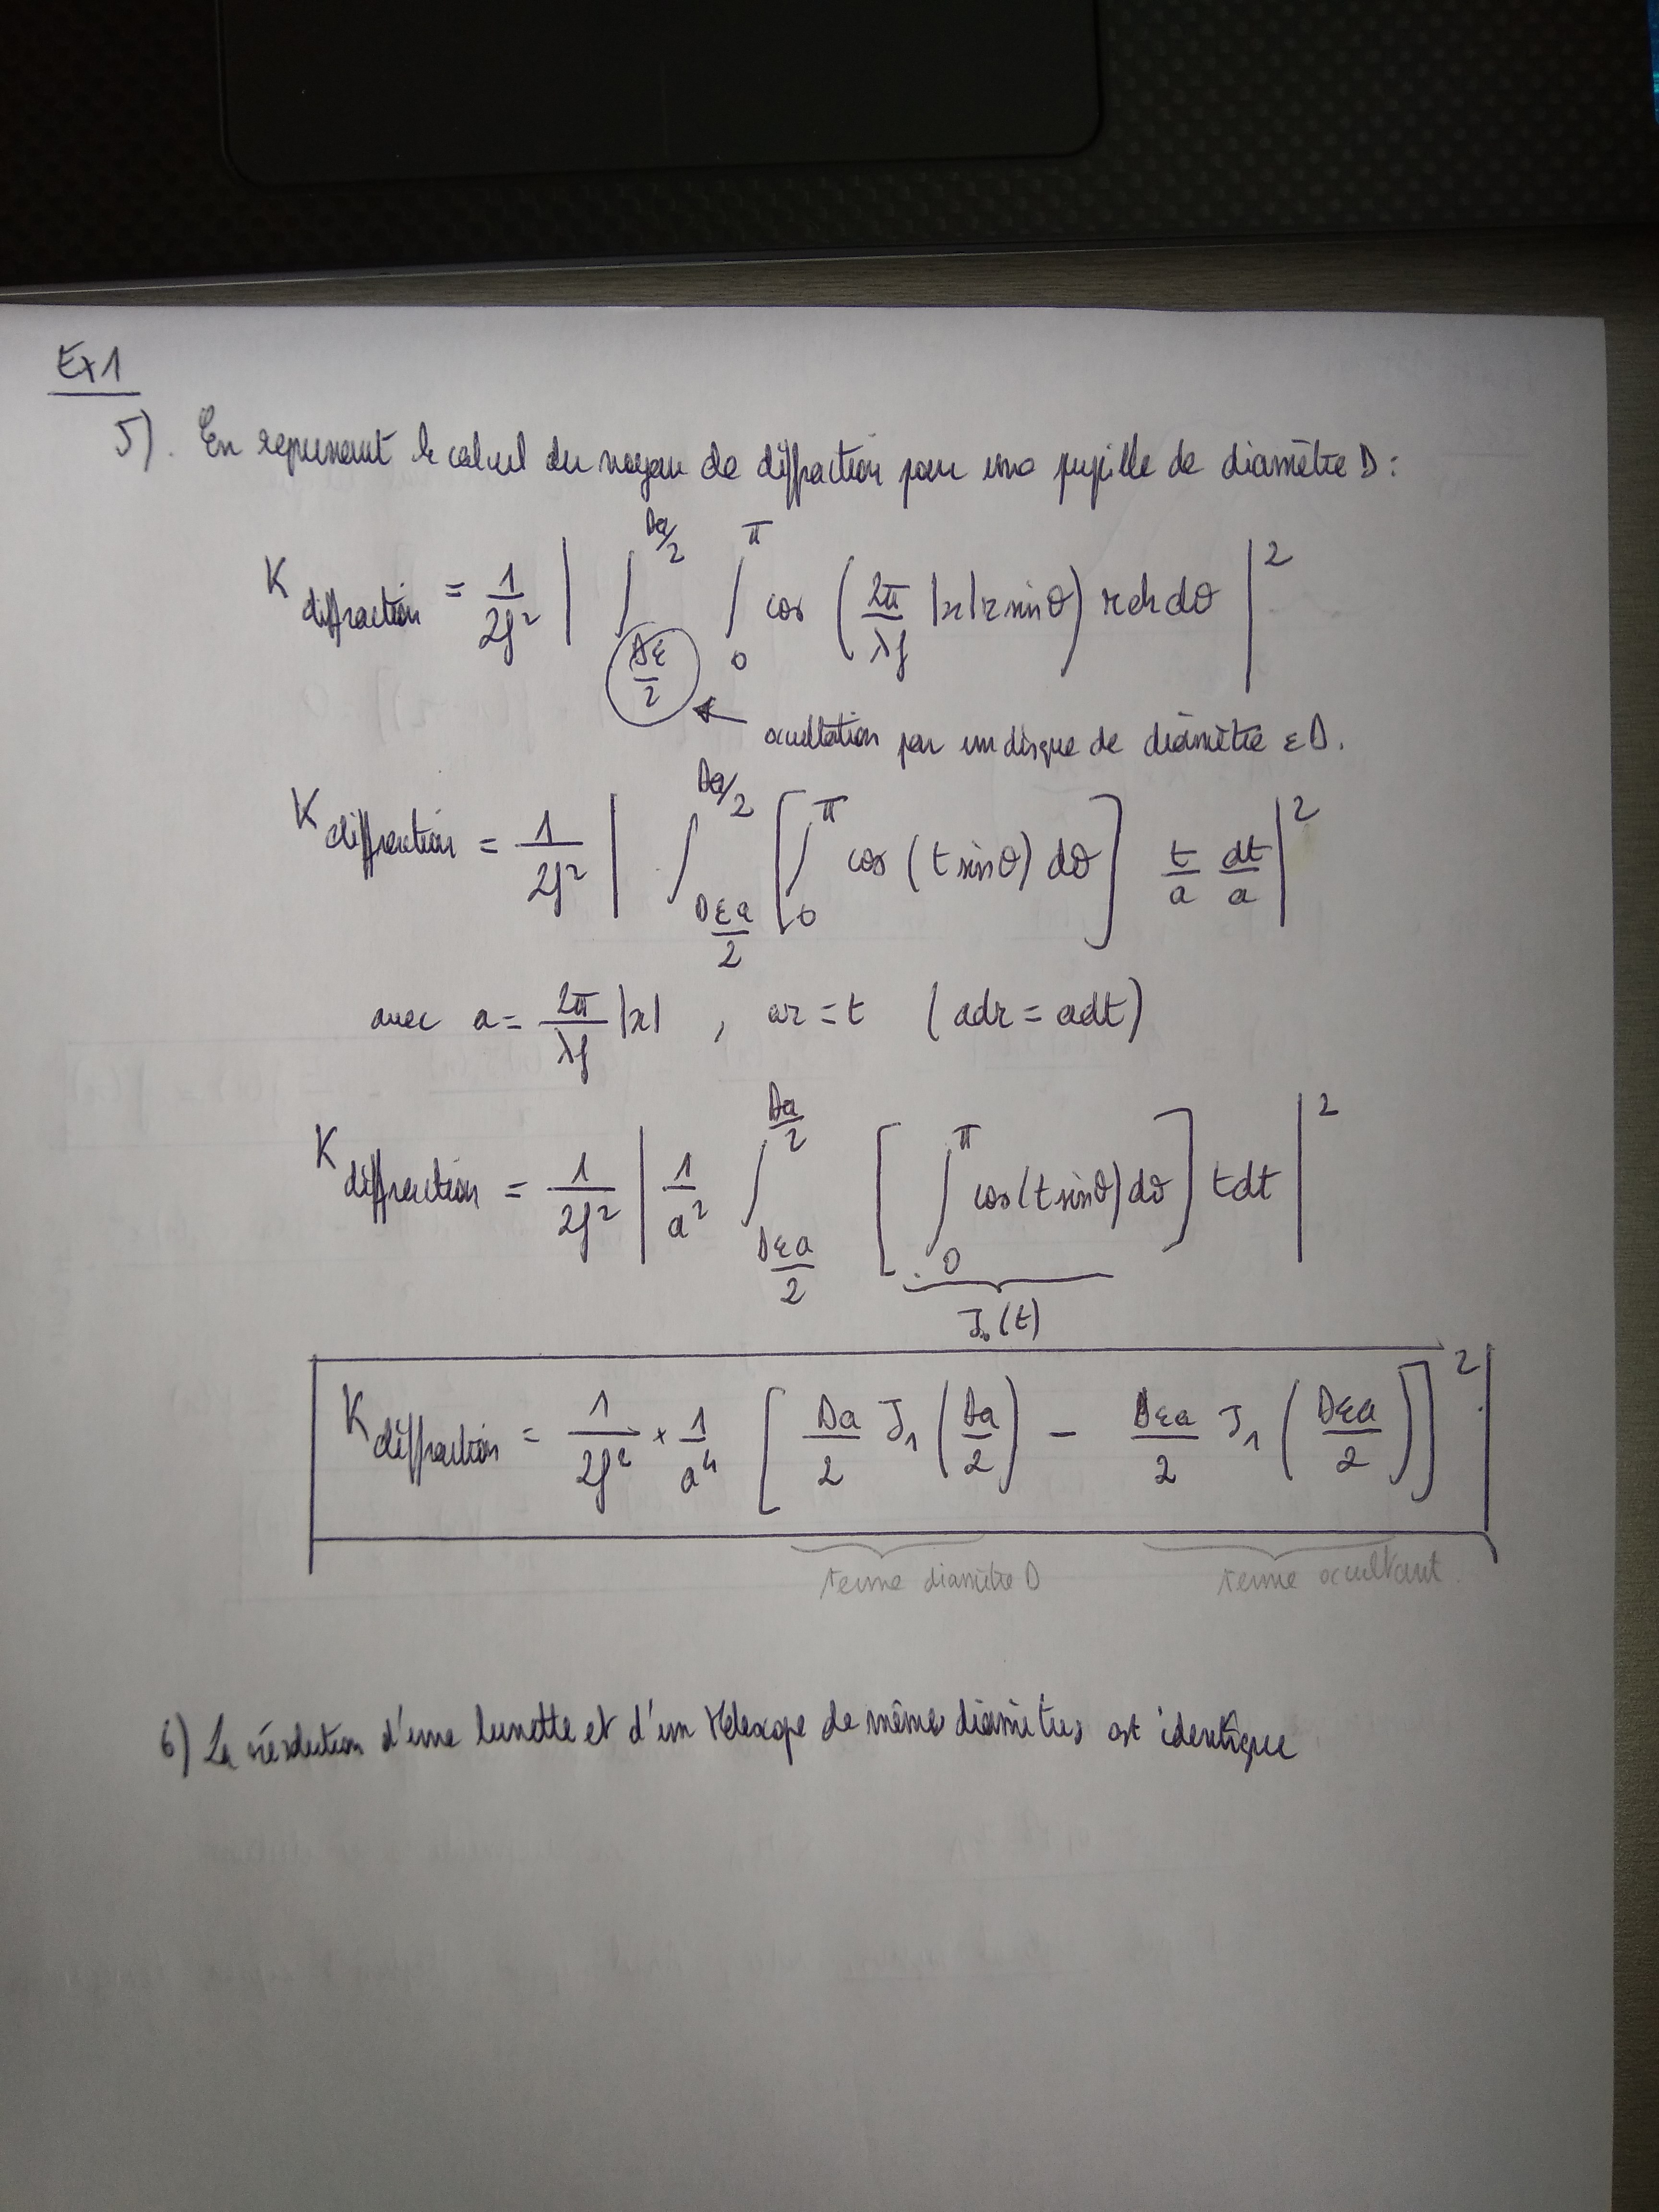 Ex1
5). En reprenant le calcul du noyau de diffraction pour une pupille de diamètre D :
K diffraction = 1/2f² | ∫_{Dε/2}^{Da/2} ∫_0^π cos (2π/λf |x| r sinθ) r dr dθ |²
occultation par un disque de diamètre εD.
K diffraction = 1/2f² | ∫_{Dεa/2}^{Da/2} [ ∫_0^π cos (t sinθ) dθ ] t/a dt/a |²
avec a = 2π/λf |x| , ar = t (adr = adt)
K diffraction = 1/2f² | 1/a² ∫_{Dεa/2}^{Da/2} [ ∫_0^π cos(t sinθ) dθ ] t dt |²
J₀(t)
K diffraction = 1/2f² × 1/a⁴ [ Da/2 J₁ (Da/2) – Dεa/2 J₁ (Dεa/2) ]²
terme diamètre D terme occultant
6) La résolution d'une lunette et d'un télescope de même diamètre est identique